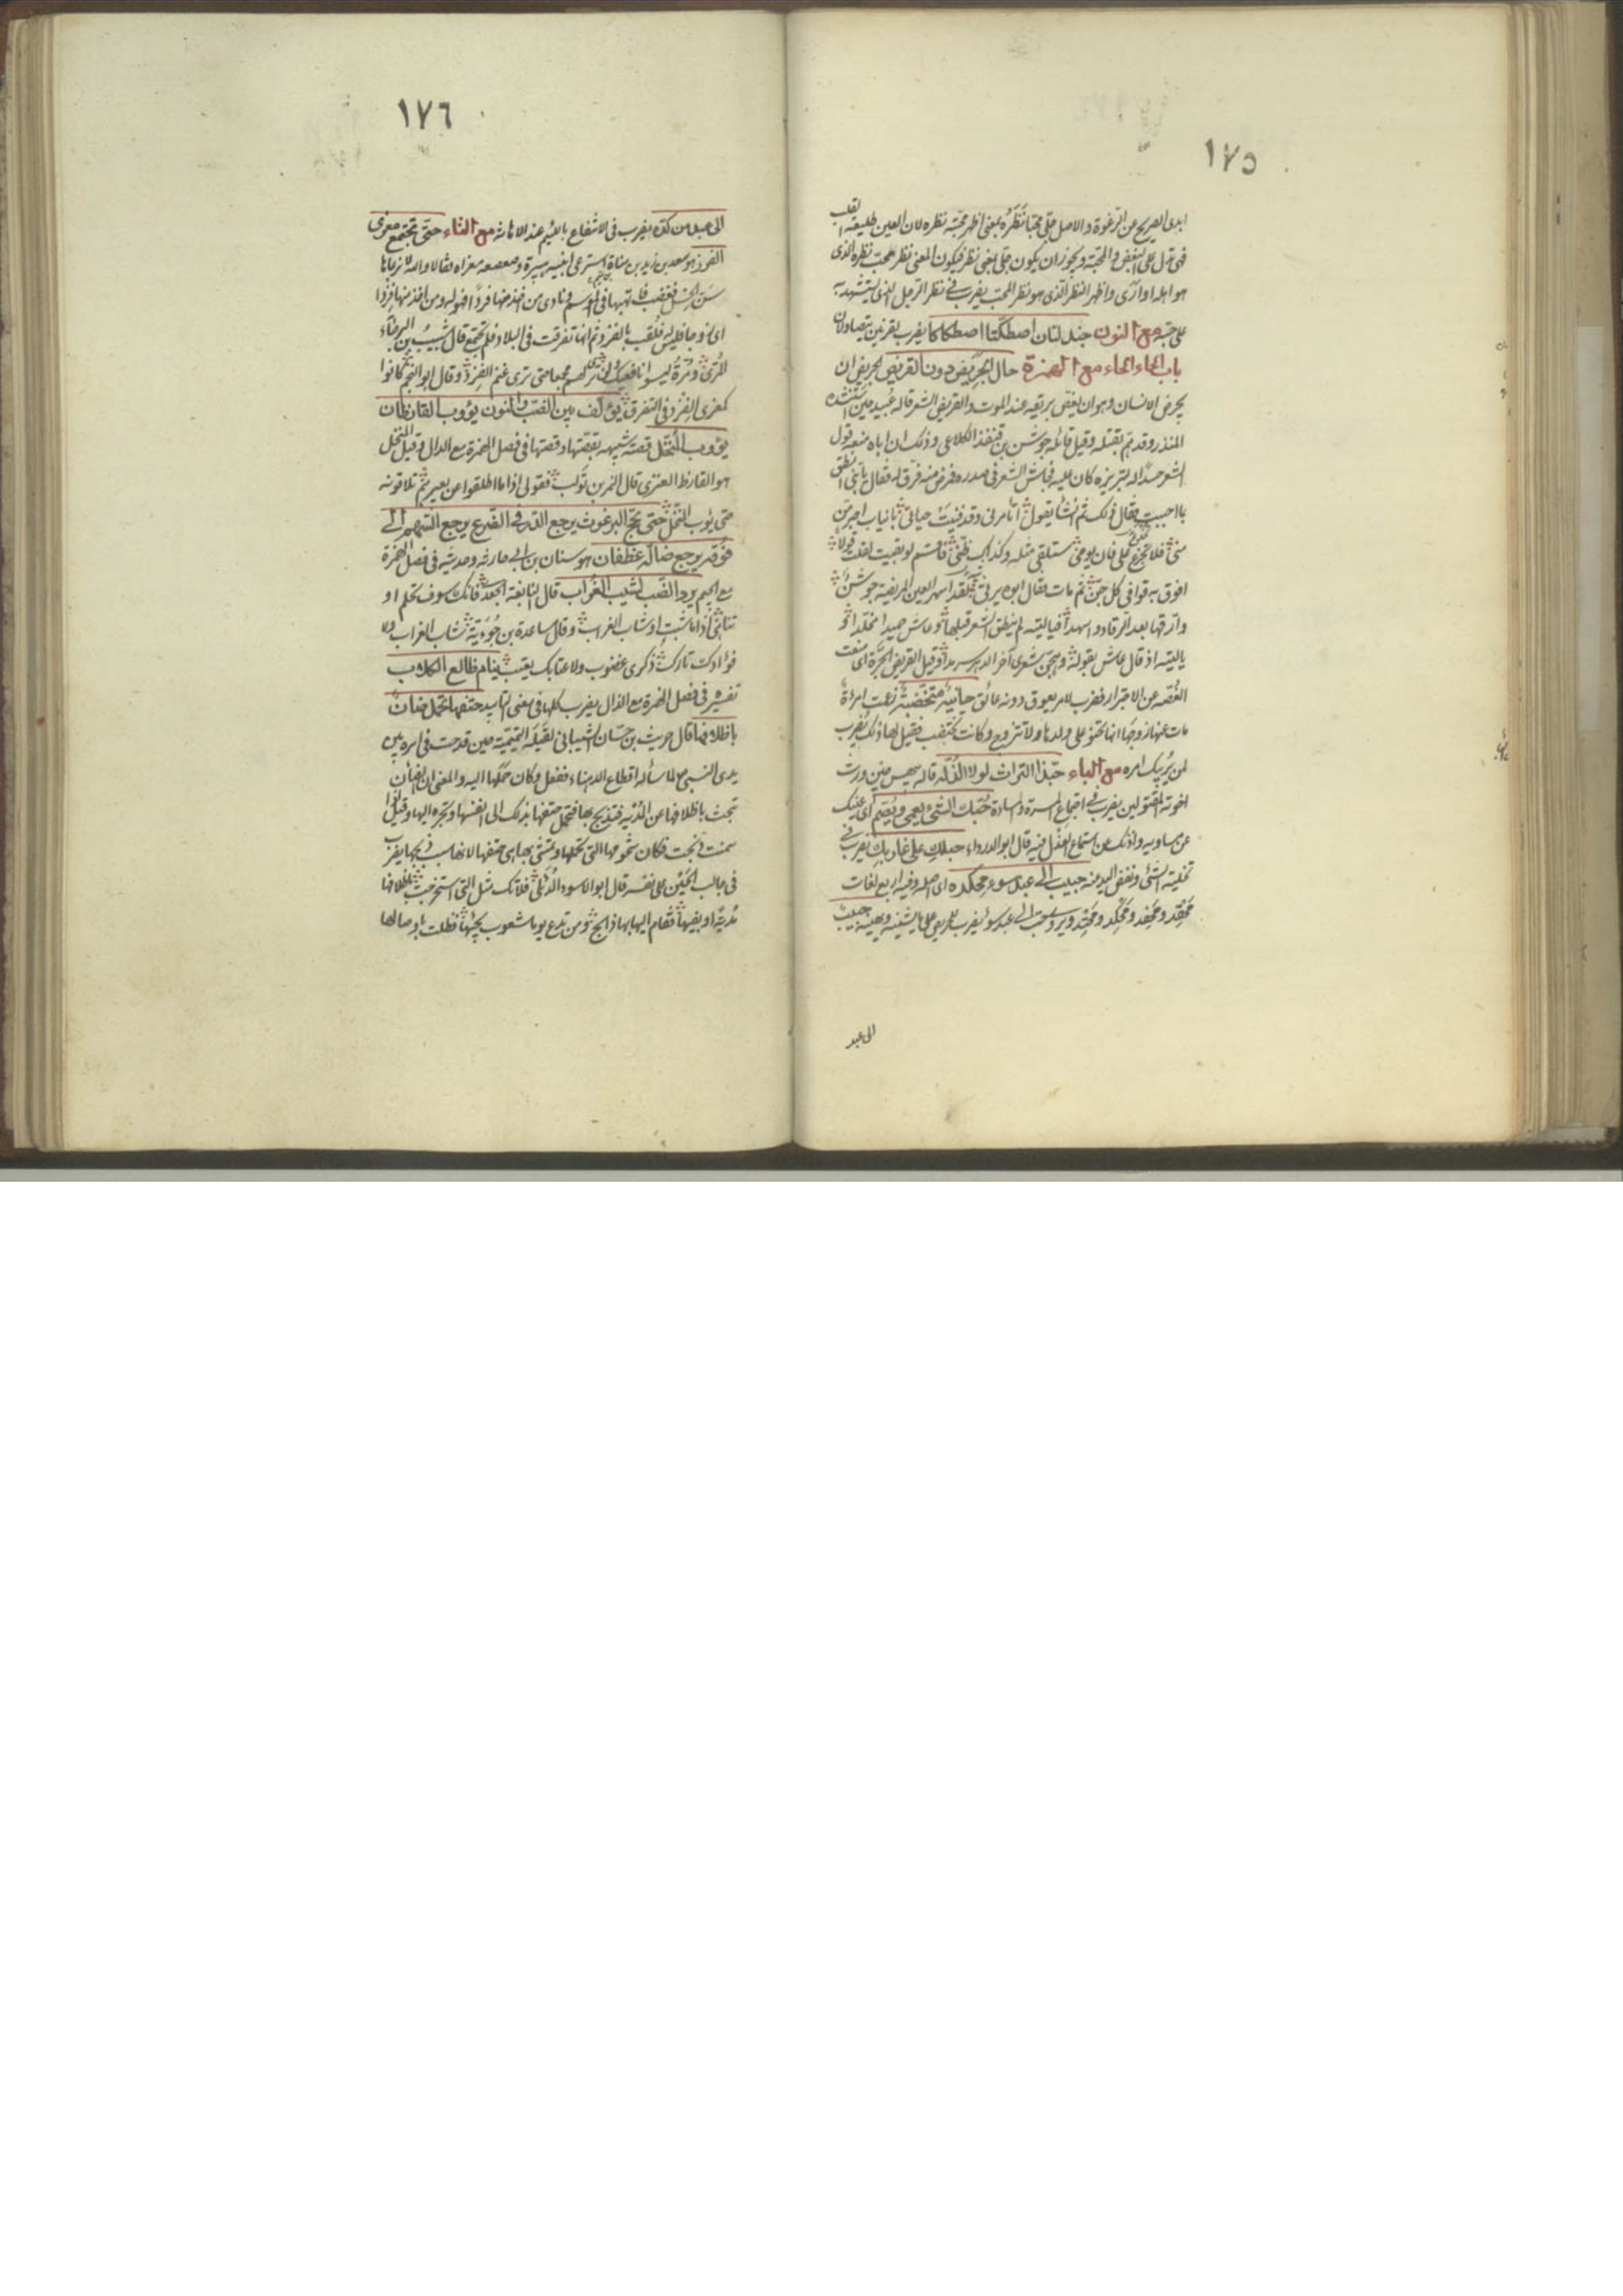 ١٧٥
ابدى الصريح عن الرغوة والاصل جلّى محبّا نَظَرُه بمعنى اظهر محبّة نظره لان العين طليعة القلب
فهى تدل على البغض والمحبة ويجوز ان يكون جلّى بمعنى نظر فيكون المعنى نظر محبّ نظره الذى
هو اهله اوارى واظهر النظر الذى هو نظر المحب يضرب فى نظر الرجل الذى يستشهد به
على حبّه مع النون جندلتان اصطكّتا اصطكاكا يضرب لقرنين يتصاولان
باب الحاء الحاء مع الهمزة حال الجريض دون القريض الجريض ان
يجرض الانسان وهو ان يغصّ بريقه عند الموت والقريض الشعر قاله عَبيد حين استنشده
المنذر وقد همّ بقتله وقيل قائله جوشن بن قنفذ الكلاعى وذلك ان اباه منعه قول
الشعر حسدًا له لتبريزه كان عليه فجاش الشعر فى صدره فمرض منه فرقّ له فقال يا بنى انطق
بما احببت فقال ذلك ثم انشأ يقول اتأمرنى وقد فنيت حياتى بابيات
منى فلا تجزع على فان يومى ستلقى مثله وكذاك ظنّى فاقسم لو بقيت لقلت قولا
افوق به قوافى كل جنّ ثم مات فقال ابوه يرثى لقد اسهر العين المريضة جوشن
وارّقها بعد الرقاد واسهدا فياليته لم ينطق الشعر قبلها وعاش حميدا مخلدا
ياليته اذ قال عاش بقوله وهجّن شعرى آخر الدهر سرمدا وقيل القريض الجرّة اى منعت
الغُصّة من الاجترار فضرب لامر يعوق دونه عائق حانية متخضّبة زعمت امرأة
مات عنها زوجها انها تحنو على ولدها ولا تتزوج وكانت تختضب فقيل لها ذلك يضرب
لمن يُريبك امره مع الباء حبّذا التراث لولا الذلّة قاله بيهس حين ورث
اخوته المقتولين يضرب فى اجتماع المسرة والمساءة حُبّك الشئ يعمى ويُصمّ اى عينك
عن مساويه واذنك عن استماع العذل فيه قال ابو الدرداء حبلكِ على غاربكِ يضرب فى
تخلية الشئ ونفض اليد منه حبيب الى عبد سوء محكده اى اصله وفيه اربع لغات
محقِد ومحفِد ومحكِد ومحتِد ويروى حبيب الى عبد سوء يضرب لمن يحرص على ما يشينه ويهينه حبيب
الى عبد
١٧٦
الى عبد من كدّه يضرب فى الانتفاع باللئيم عند الاهانة مع التاء حتى تجتمع معزى
الفزر هو سعد بن زيد بن مناة استرعى ابنيه هبيرة وصعصعة معزاه فقالا والله لا نرعاها
سنّ الحِسل فغضب فانهبها فى الموسم ونادى من اخذ منها فردًا فهو له ومن اخذ منها فِزرا
اى زوجا فليس فلُقّب بالفزر ثم انها تفرقت فى البلاد فلم تجتمع قال شبيب بن البرصاء
المُرّى ومُرّة ليسوا نافعيك ولن ترى لهم مجمعا حتى ترى غنم الفزر وقال ابو النجم كانوا
كمعزى الفِزر فى التفرق يؤلّف بين الضبّ والنون يؤوب القارظان
يؤوب المُنخّل قصته شبيهة بقصتها وقصتها فى فصل الهمزة مع الدال وقيل المنخل
هو القارظ العنزى قال النمر بن تولب فقولى اذا ما اطلقوا عن بعيرهم تلاقونه
حتى يئوب المنخّل حتى يحجّ البرغوث يرجع الدرّ فى الضرع يرجع السهم الى
فُوقه يرجع ضالّة غطفان هو سنان بن ابى حارثة وحديثه فى فصل الهمزة
مع الجيم يرد الضبّ يشيب الغُراب قال النابغة الجعدى فانك سوف تحلم او
تناهى اذا ما شبت او شاب الغراب وقال ساعدة بن جُويّة شاب الغراب ولا
فؤادك تارك ذكرى غضوب ولا عتابك يعتب ينام ظالع الكلاب
تفسيره فى فصل الهمزة مع الذال يضرب كلها فى معنى التأبيد حتفها تحمل ضأن
باظلافها قال حريث بن حسّان الشيبانى لقيلة التميمية حين قدمت فى امره بين
يدى النبى لما سأله اقطاع الدهناء ففعل وكان حملها اليه والمعنى ان الضأن
تبحث باظلافها عن المُدْية فتذبح بها فتحمل حتفها بذلك الى انفسها وتجره اليها وقيل اذا
سمنت ذبحت فكان شحومها التى تحملها وتمشى بها هى حتفها لانها سبب ذبحها يضرب
فى جالب الحَين على نفسه قال ابو الاسود الدؤلى فلا تك مثل التى استخرجت باظلافها
مُدية او بفيها فقام اليها بها ذابح ومن تدع يوما شعوب يجئها فظلت باوصالها